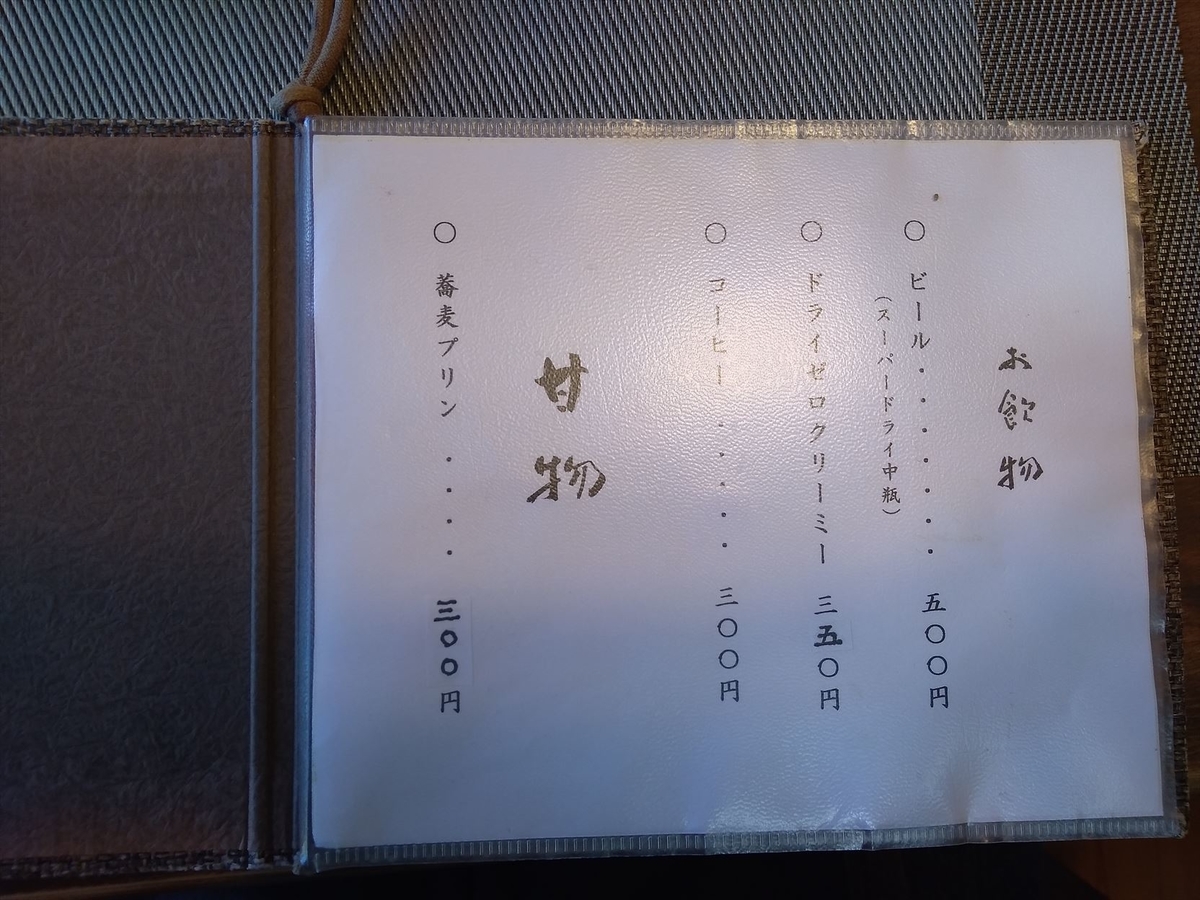 お飲物
○ ビール・・・・・・・ 五〇〇円
（スーパードライ中瓶）
○ ドライゼロクリーミー 三五〇円
○ コーヒー ・・・・・ 三〇〇円
甘物
○ 蕎麦プリン ・・・・ 三〇〇円